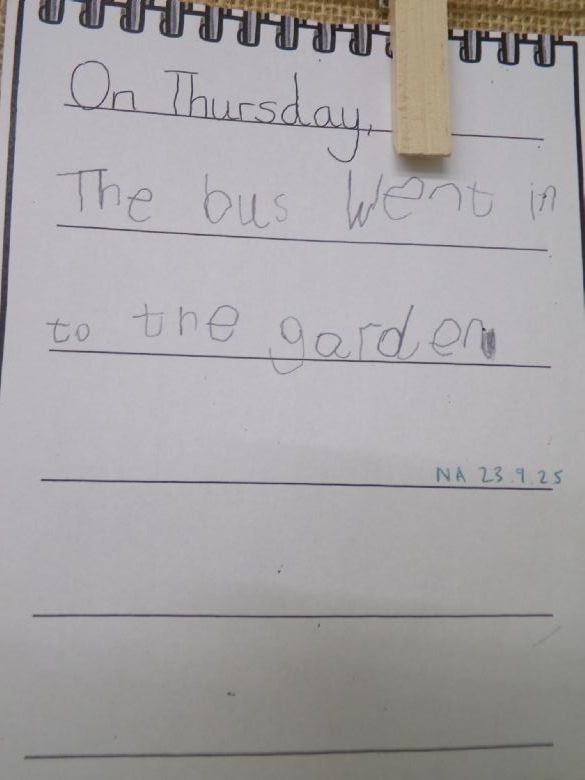 On Thursday,
The bus Went in
to the garden
NA 23.9.25